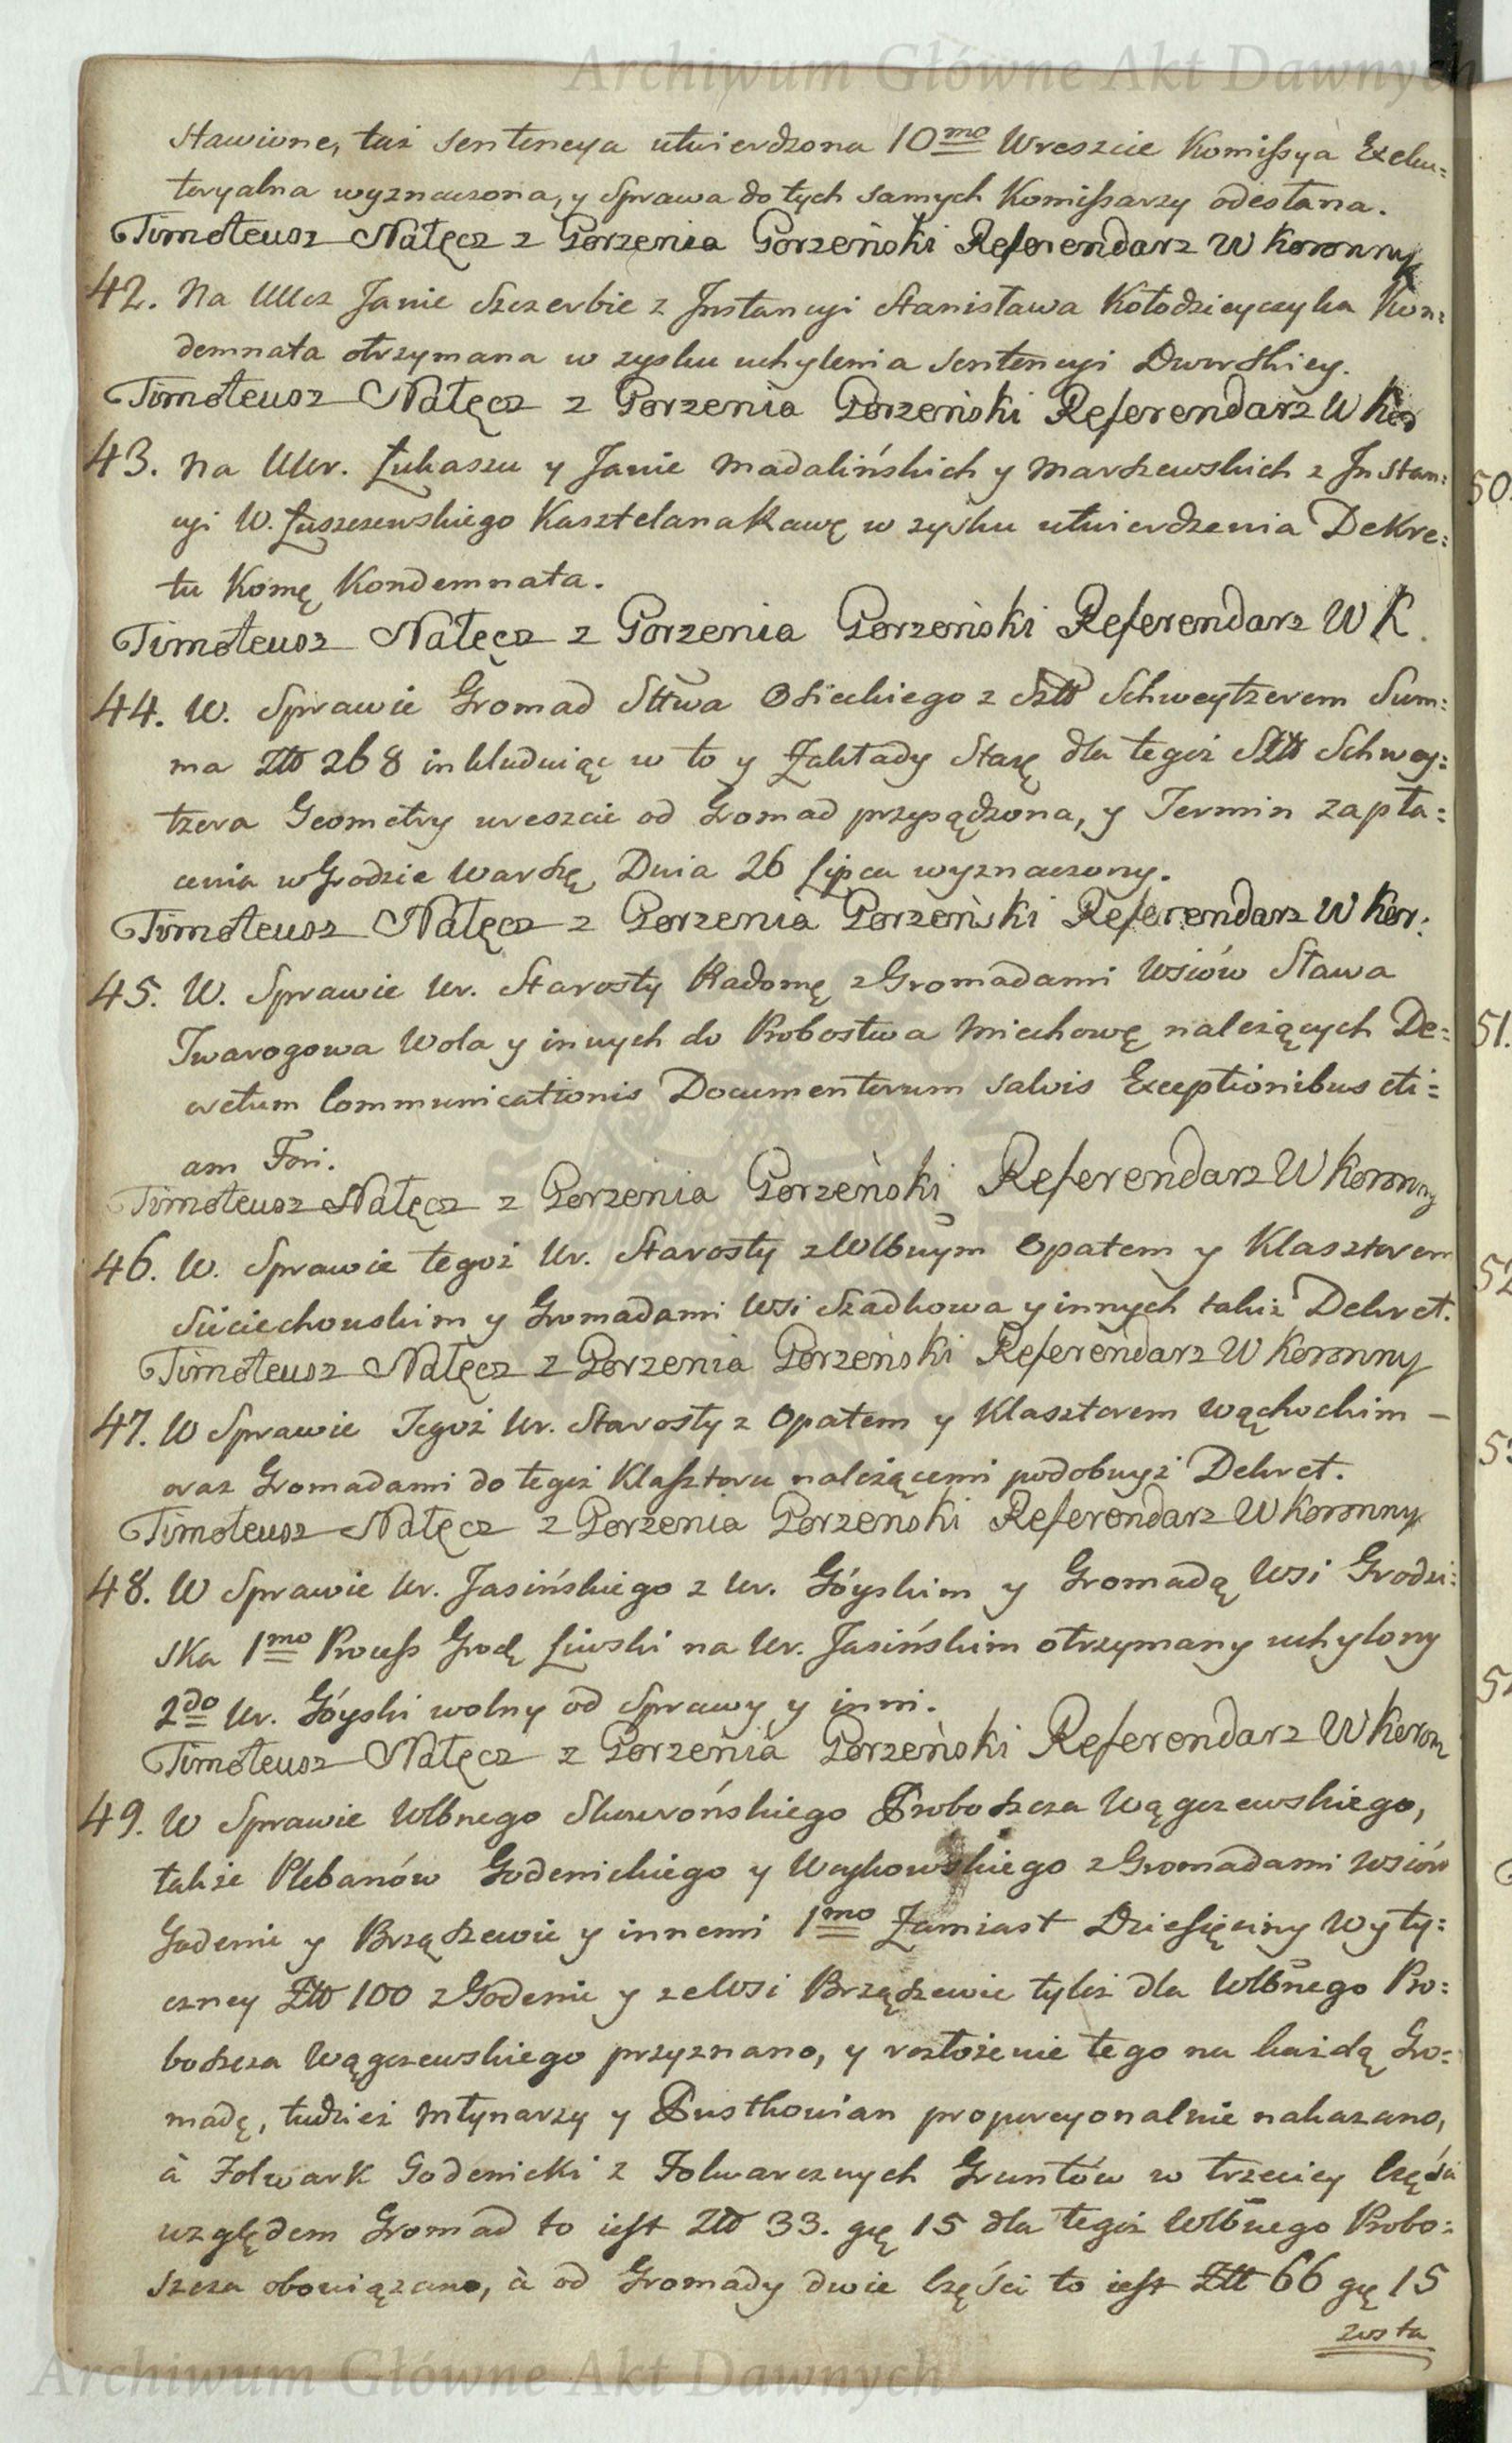 Archiwum Główne Akt Dawnych
stawione, taż sentencya utwierdzona 10mo Wreszcie Komissya Exeku=
toryalna wyznaczona, y Sprawa do tych samych Komissarzy odesłana.
Timoteusz Nałęcz z Gorzenia Gorzeński Referendarz W Koronny
42. Na Ucz Janie Szczerbie z Instancyi Stanisława Kołodzieyczyka Kon=
demnata otrzymana w zysku uchylenia sentencyi Dworskiey.
Timoteusz Nałęcz z Gorzenia Gorzeński Referendarz W Kor
43. Na UUr. Łukaszu y Janie Madalińskich y Marszewskich z Instan=
cyi W. Łuszczewskiego Kasztelana Rawę w zysku utwierdzenia Dekre=
tu Komę Kondemnata.
Timoteusz Nałęcz z Gorzenia Gorzeński Referendarz W K.
44. W. Sprawie Gromad Sttwa Osieckiego z Sztt Schweytzerem Sum=
ma Ztt 268 inkluduiąc w to y Zakłady Starę dla tegoż Sztt Schwey=
tzera Geometry ureszcie od Gromad przysądzona, y Termin zapła=
cenia w Grodzie Warszę Dnia 26 Lipca wyznaczony.
Timoteusz Nałęcz z Gorzenia Gorzeński Referendarz W Kor:
45. W. Sprawie Ur. Starosty Radomę z Gromadami Wsiów Sława
Twarogowa Wola y innych do Probostwa Miechowę należących De=
cretum Communicationis Documentorum salvis Exceptionibus eti=
am Fori.
Timoteusz Nałęcz z Gorzenia Gorzeński Referendarz W Koronny
46. W. Sprawie tegoż Ur. Starosty z Wlbnym Opatem y Klasztorem
Sieciechowskim y Gromadami Wsi Szadkowa y innych takiż Dekret.
Timoteusz Nałęcz z Gorzenia Gorzeński Referendarz W Koronny
47. W Sprawie Tegoż Ur. Starosty z Opatem y Klasztorem Wąchockim –
oraz Gromadami do tegoż Klasztoru należącemi podobnyż Dekret.
Timoteusz Nałęcz z Gorzenia Gorzeński Referendarz W Koronny
48. W Sprawie Ur. Jasińskiego z Ur. Góyskim y Gromadą Wsi Grodzi=
ska 1mo Process Grodę Liwski na Ur. Jasińskim otrzymany uchylony
2do Ur. Góyski wolny od Sprawy y inni.
Timoteusz Nałęcz z Gorzenia Gorzeński Referendarz W Koron
49. W Sprawie Wlbnego Skowrońskiego Proboszcza Wągczewskiego,
także Plebanów Godenickiego y Woykowskiego z Gromadami Wsiów
Godenie y Brząszewie y innemi 1mo Zamiast Dziesięciny Wyty=
czney Ztt 100 z Godenie y ze Wsi Brząszewie tyleż dla Wlbnego Pro=
boszcza Wągczewskiego przyznano, y rozłożenie tego na każdą Gro=
madę, tudzież Młynarzy y Pustkowian proporcyonalnie nakazano,
à Folwark Godenicki z Folwarcznych Gruntów w trzeciey części
względem Gromad to iest Ztt 33. grę 15 dla tegoż Wlbnego Probo=
szcza obowiązano, à od Gromady dwie części to iest Ztt 66 grę 15
zosta
50.
51.
52
Archiwum Główne Akt Dawnych